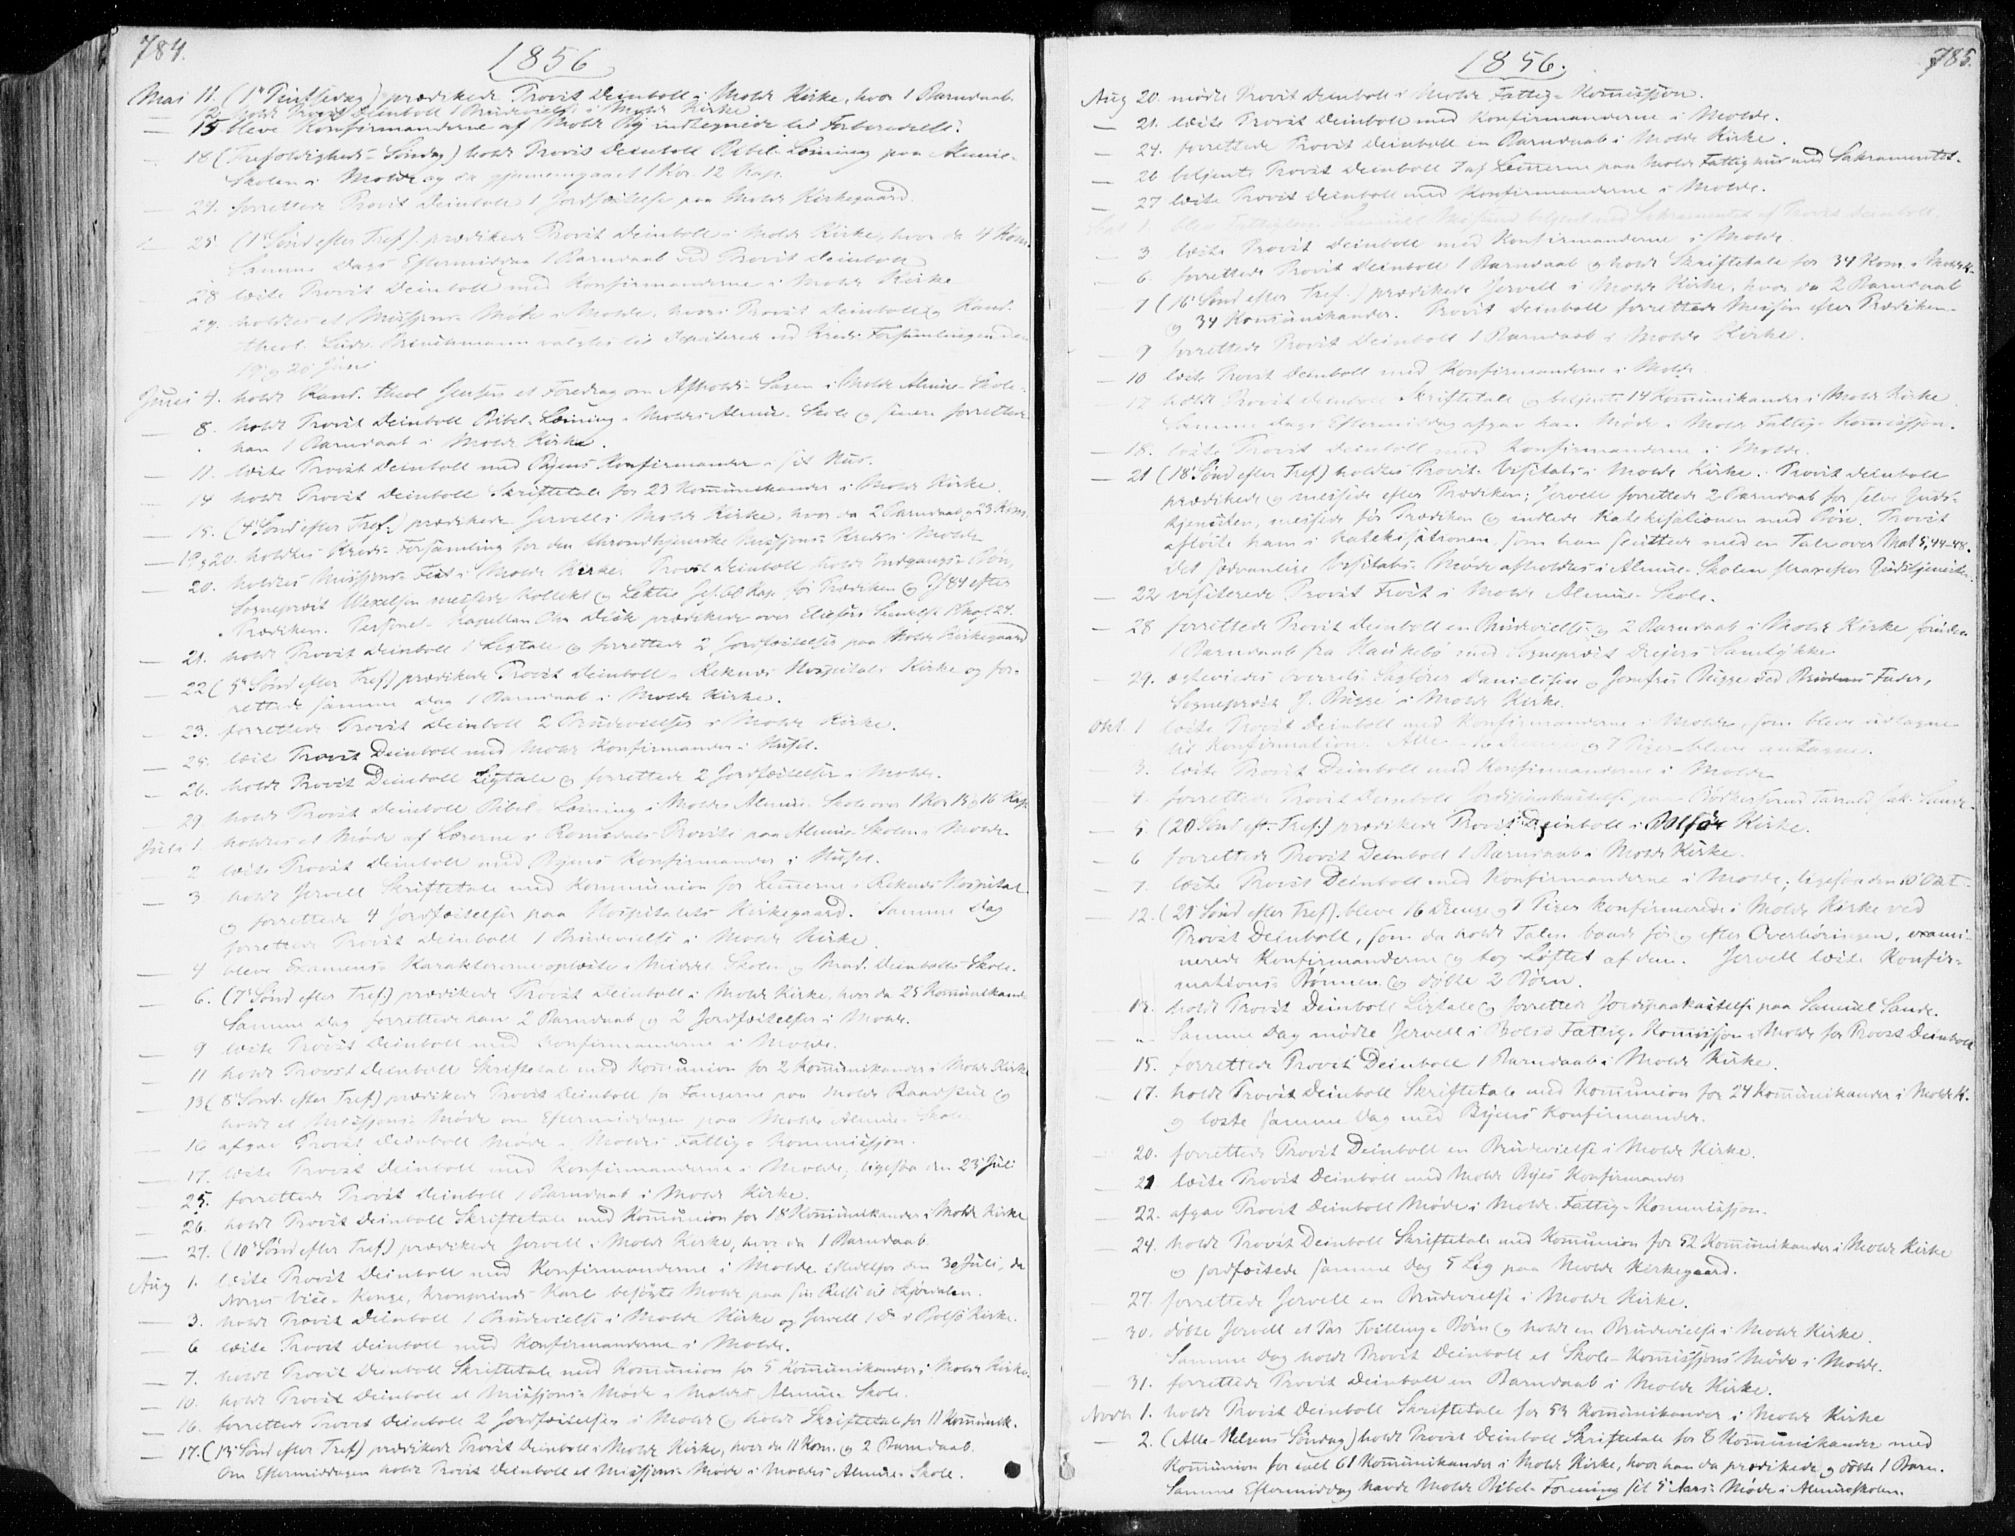 784.
1856
Mai 11. (1ste Pintsedag) prædikede Provst Deinboll i Molde Kirke, hvor 1 Barndaab.
— 12. holdt Provst Deinboll 1 Brudevielse i Molde Kirke
— 15 bleve Konfirmanderne af Molde By indtegnede til Forberedelse.
18 (Trefoldigheds-Søndag) holdt Provst Deinboll Bibel-Læsning paa Almue-
Skolen i Molde og da gjennemgaaet 1 Kor. 12 Kap.
— 24. forrettede Provst Deinboll 1 Jordfæstelse paa Molde Kirkegaard.
25. (1 Sønd efter Tref.) prædikede Provst Deinboll i Molde Kirke, hvor da 4 Kom.
Samme Dags Eftermiddag 1 Barndaab ved Provst Deinboll
— 28 læste Provst Deinboll med Konfirmanderne i Molde Kirke
29. holdtes et Missions-Møde i Molde, hvori Provst Deinboll og Kand.
theol. valgtes til Deputerede ved Kreds-Forsamlingen den
19 og 20 Juni
Juni 4. holdt Kand. theol et Foredrag om Afholds-Sagen i Molde Almue-Skole.
— 8. holdt Provst Deinboll Bibel-Læsning i Molde Almue-Skole og senere forrettede
han 1 Barndaab i Molde Kirke.
— 11. læste Provst Deinboll med Byens Konfirmander i sit Hus.
— 14 holdt Provst Deinboll Skriftetale for 23 Kommunikander i Molde Kirke.
— 15. (4 Sønd efter Tref.) prædikede Jervell i Molde Kirke, hvor da 2 Barndaab og 23 Kom.
— 19 og 20. holdtes Kreds-Forsamling for den throndhjemske Missions-Kreds i Molde
— 20. holdtes Missions-Fest i Molde Kirke. Provst Deinboll holdt Indgangs-Bøn,
Sogneprest Wexelsen messede Kollekt og Lektie Kap. før Prædiken og Ps 84 efter
Prædiken. Personel-Kapellan prædikede over Eliesers Sendelse 1 Mos 24.
— 21. holdt Provst Deinboll 1 Ligtale og forrettede 2 Jordfæstelser paa Molde Kirkegaard
— 22 (5 Sønd efter Tref) prædikede Provst Deinboll i Reknes Hospitals Kirke og for-
rettede samme Dag 1 Barndaab i Molde Kirke.
— 23. forrettede Provst Deinboll 2 Brudevielser i Molde Kirke.
— 25. læste Provst Deinboll med Molde Konfirmander i Huset.
— 26. holdt Provst Deinboll Ligtale og forrettede 2 Jordfæstelser i Molde.
— 29 holdt Provst Deinboll Bibel-Læsning i Molde Almue-Skole over 1 Kor 15 og 16 Kap.
Juli 1 holdtes et Møde af Lærerne i Romsdals Provsti paa Almue-Skolen i Molde.
— 2 læste Provst Deinboll med Byens Konfirmander i Huset.
— 3 holdt Jervell Skriftetale med Kommunion for Lemmerne i Reknes Hospital
og forrettede 4 Jordfæstelser paa Hospitalets Kirkegaard. Samme Dag
forrettede Provst Deinboll 1 Brudevielse i Molde Kirke.
— 4 bleve Examens-Karaktererne oplæste i Middel-Skolen og Mad. Deinbolls Skole.
— 6. (7 Sønd efter Tref.) prædikede Provst Deinboll i Molde Kirke, hvor da 25 Kommunikand.
Samme Dag forrettede han 2 Barndaab og 2 Jordfæstelser i Molde.
— 9 læste Provst Deinboll med Konfirmanderne i Molde.
— 11 holdt Provst Deinboll Skriftetale med Kommunion for 2 Kommunikander i Molde Kirke
— 13 (8 Sønd. efter Tref) prædikede Provst Deinboll for Fangerne paa Molde Raadstue og
holdt et Missions-Møde om Eftermiddagen paa Molde Almue-Skole
— 16 afgav Provst Deinboll Møde i Molde Fattig-Kommission.
— 17. læste Provst Deinboll med Konfirmanderne i Molde, ligesaa den 23 Juli
— 25. forrettede Provst Deinboll 1 Barndaab i Molde Kirke.
— 26. holdt Provst Deinboll Skriftetale med Kommunion for 18 Kommunikander i Molde Kirke
— 27. (10 Sønd efter Tref.) prædikede Jervell i Molde Kirke, hvor da 1 Barndaab
Aug 1. læste Provst Deinboll med Konfirmanderne i Molde istedetfor den 30 Juli, da
Norges Vice-Konge, Kronprinds Karl besøgte Molde paa sin Reise til Stjørdalen.
— 3. holdt Provst Deinboll 1 Brudevielse i Molde Kirke og Jervell 1 Do i Bolsø Kirke.
— 6 læste Provst Deinboll med Konfirmanderne i Molde.
— 7. holdt Provst Deinboll Skriftetale med Kommunion for 5 Kommunikander i Molde Kirke.
— 10. holdt Provst Deinboll et Missions-Møde i Molde Almue-Skole.
— 16. forrettede Provst Deinboll 2 Jordfæstelser i Molde og holdt Skriftetale for 11 Kommunik.
— 17. (13 Sønd efter Tref) prædikede Provst Deinboll i Molde Kirke, hvor da 11 Kom. og 2 Barndaab.
Om Eftermiddagen holdt Provst Deinboll et Missions-Møde i Molde Almue-Skole.
785.
1856.
Aug 20. mødte Provst Deinboll i Molde Fattig-Kommission.
— 21. læste Provst Deinboll med Konfirmanderne i Molde.
— 24. forrettede Provst Deinboll en Barndaab i Molde Kirke.
— 26 betjente Provst Deinboll 7 af Lemmerne paa Molde Fattighus med Sakramentet.
— 27 læste Provst Deinboll med Konfirmanderne i Molde.
Sept 1. blev Fattiglem betjent med Sakramentet af Provst Deinboll.
— 3 læste Provst Deinboll med Konfirmanderne i Molde
— 6. forrettede Provst Deinboll 1 Barndaab og holdt Skriftetale for 34 Kom. i Molde K.
— 7 (16 Sønd efter Tref.) prædikede Jervell i Molde Kirke, hvor da 2 Barndaab
og 34 Kommunikander. Provst Deinboll forrettede Messen efter Prædiken.
— 9 forrettede Provst Deinboll 1 Barndaab i Molde Kirke.
— 10 læste Provst Deinboll med Konfirmanderne i Molde
— 17 holdt Provst Deinboll Skriftetale og betjente 14 Kommunikander i Molde Kirke
Samme Dags Eftermiddag afgav han Møde i Molde Fattig-Kommission.
— 18. læste Provst Deinboll med Konfirmanderne i Molde.
— 21 (18 Sønd efter Tref) holdtes Provste-Visitats i Molde Kirke. Provst Deinboll
prædikede og messede efter Prædiken; Jervell forrettede 2 Barndaab før selve Guds-
tjenesten, messede før Prædiken og indlede Katekisationen med Bøn. Provst
afløste ham i Katekisationen, som han sluttede med en Tale over Mat 5, 44-48.
Det sædvanlige Visitats-Møde afholdtes i Almue-Skolen strax efter Gudstjenesten.
— 22 visiterede Provst Deinboll i Molde Almue-Skole.
— 28 forrettede Provst Deinboll en Brudevielse og 2 Barndaab i Molde Kirke foruden
1 Barndaab fra med Sogneprest Dreiers Samtykke
— 29. ægteviedes Overrets-Sagfører Danielsen og Bugge ved Brudens Fader,
Sogneprest J. Bugge i Molde Kirke.
Okt. 1 læste Provst Deinboll med Konfirmanderne i Molde, som bleve udtagne
til Konfirmation. Alle 16 Drenge og 7 Piger bleve antagne.
3. læste Provst Deinboll med Konfirmanderne i Molde
— 4. forrettede Provst Deinboll Jordspaakastelse paa
— 5. (20 Sønd eft. Tref.) prædikede Provst Deinboll i Bolsø Kirke.
— 6 forrettede Provst Deinboll 1 Barndaab i Molde Kirke.
— 7. læste Provst Deinboll med Konfirmanderne i Molde; ligesaa den 10 Okt.
— 12. (21 Sønd efter Tref). bleve 16 Drenge og 7 Piger konfirmerede i Molde Kirke ved
Provst Deinboll, som da holdt Talen baade før og efter Overhøringen, exami-
nerede Konfirmanderne og tog Løftet af dem. Jervell læste Konfir-
mations-Bønnen og døbte 2 Børn.
— 13. holdt Provst Deinboll Ligtale og forrettede Jordspaakastelse paa Samuel Sande.
— " Samme Dag mødte Jervell i Bolsø Fattig-Kommission i Molde for Provst Deinboll
— 15. forrettede Provst Deinboll 1 Barndaab i Molde Kirke.
— 17. holdt Provst Deinboll Skriftetale med Kommunion for 24 Kommunikander i Molde K.
og læste samme Dag med Byens Konfirmander.
— 20. forrettede Provst Deinboll en Brudevielse i Molde Kirke.
— 21 læste Provst Deinboll med Molde Byes Konfirmander
— 22. afgav Provst Deinboll Møde i Molde Fattig-Kommission.
— 24. holdt Provst Deinboll Skriftetale med Kommunion for 52 Kommunikander i Molde Kirke
og jordfæstede samme Dag 5 Lig paa Molde Kirkegaard.
— 27. forrettede Jervell en Brudevielse i Molde Kirke.
— 30. døbte Jervell et Par Tvillinge-Børn og holdt en Brudevielse i Molde Kirke.
Samme Dag holdt Provst Deinboll et Skole-Kommissions Møde i Molde.
— 31. forrettede Provst Deinboll en Barndaab i Molde Kirke.
Novbr 1. holdt Provst Deinboll Skriftetale for 53 Kommunikander i Molde Kirke
— 2. (Alle-Helgens Søndag) holdt Provst Deinboll Skriftetale for 8 Kommunikander med
Kommunion for ialt 61 Kommunikander i Molde Kirke, hvor han da prædikede og døbte 1 Barn.
Samme Eftermiddag havde Molde Bibel-Forening sit 5 Aars-Møde i Almueskolen.